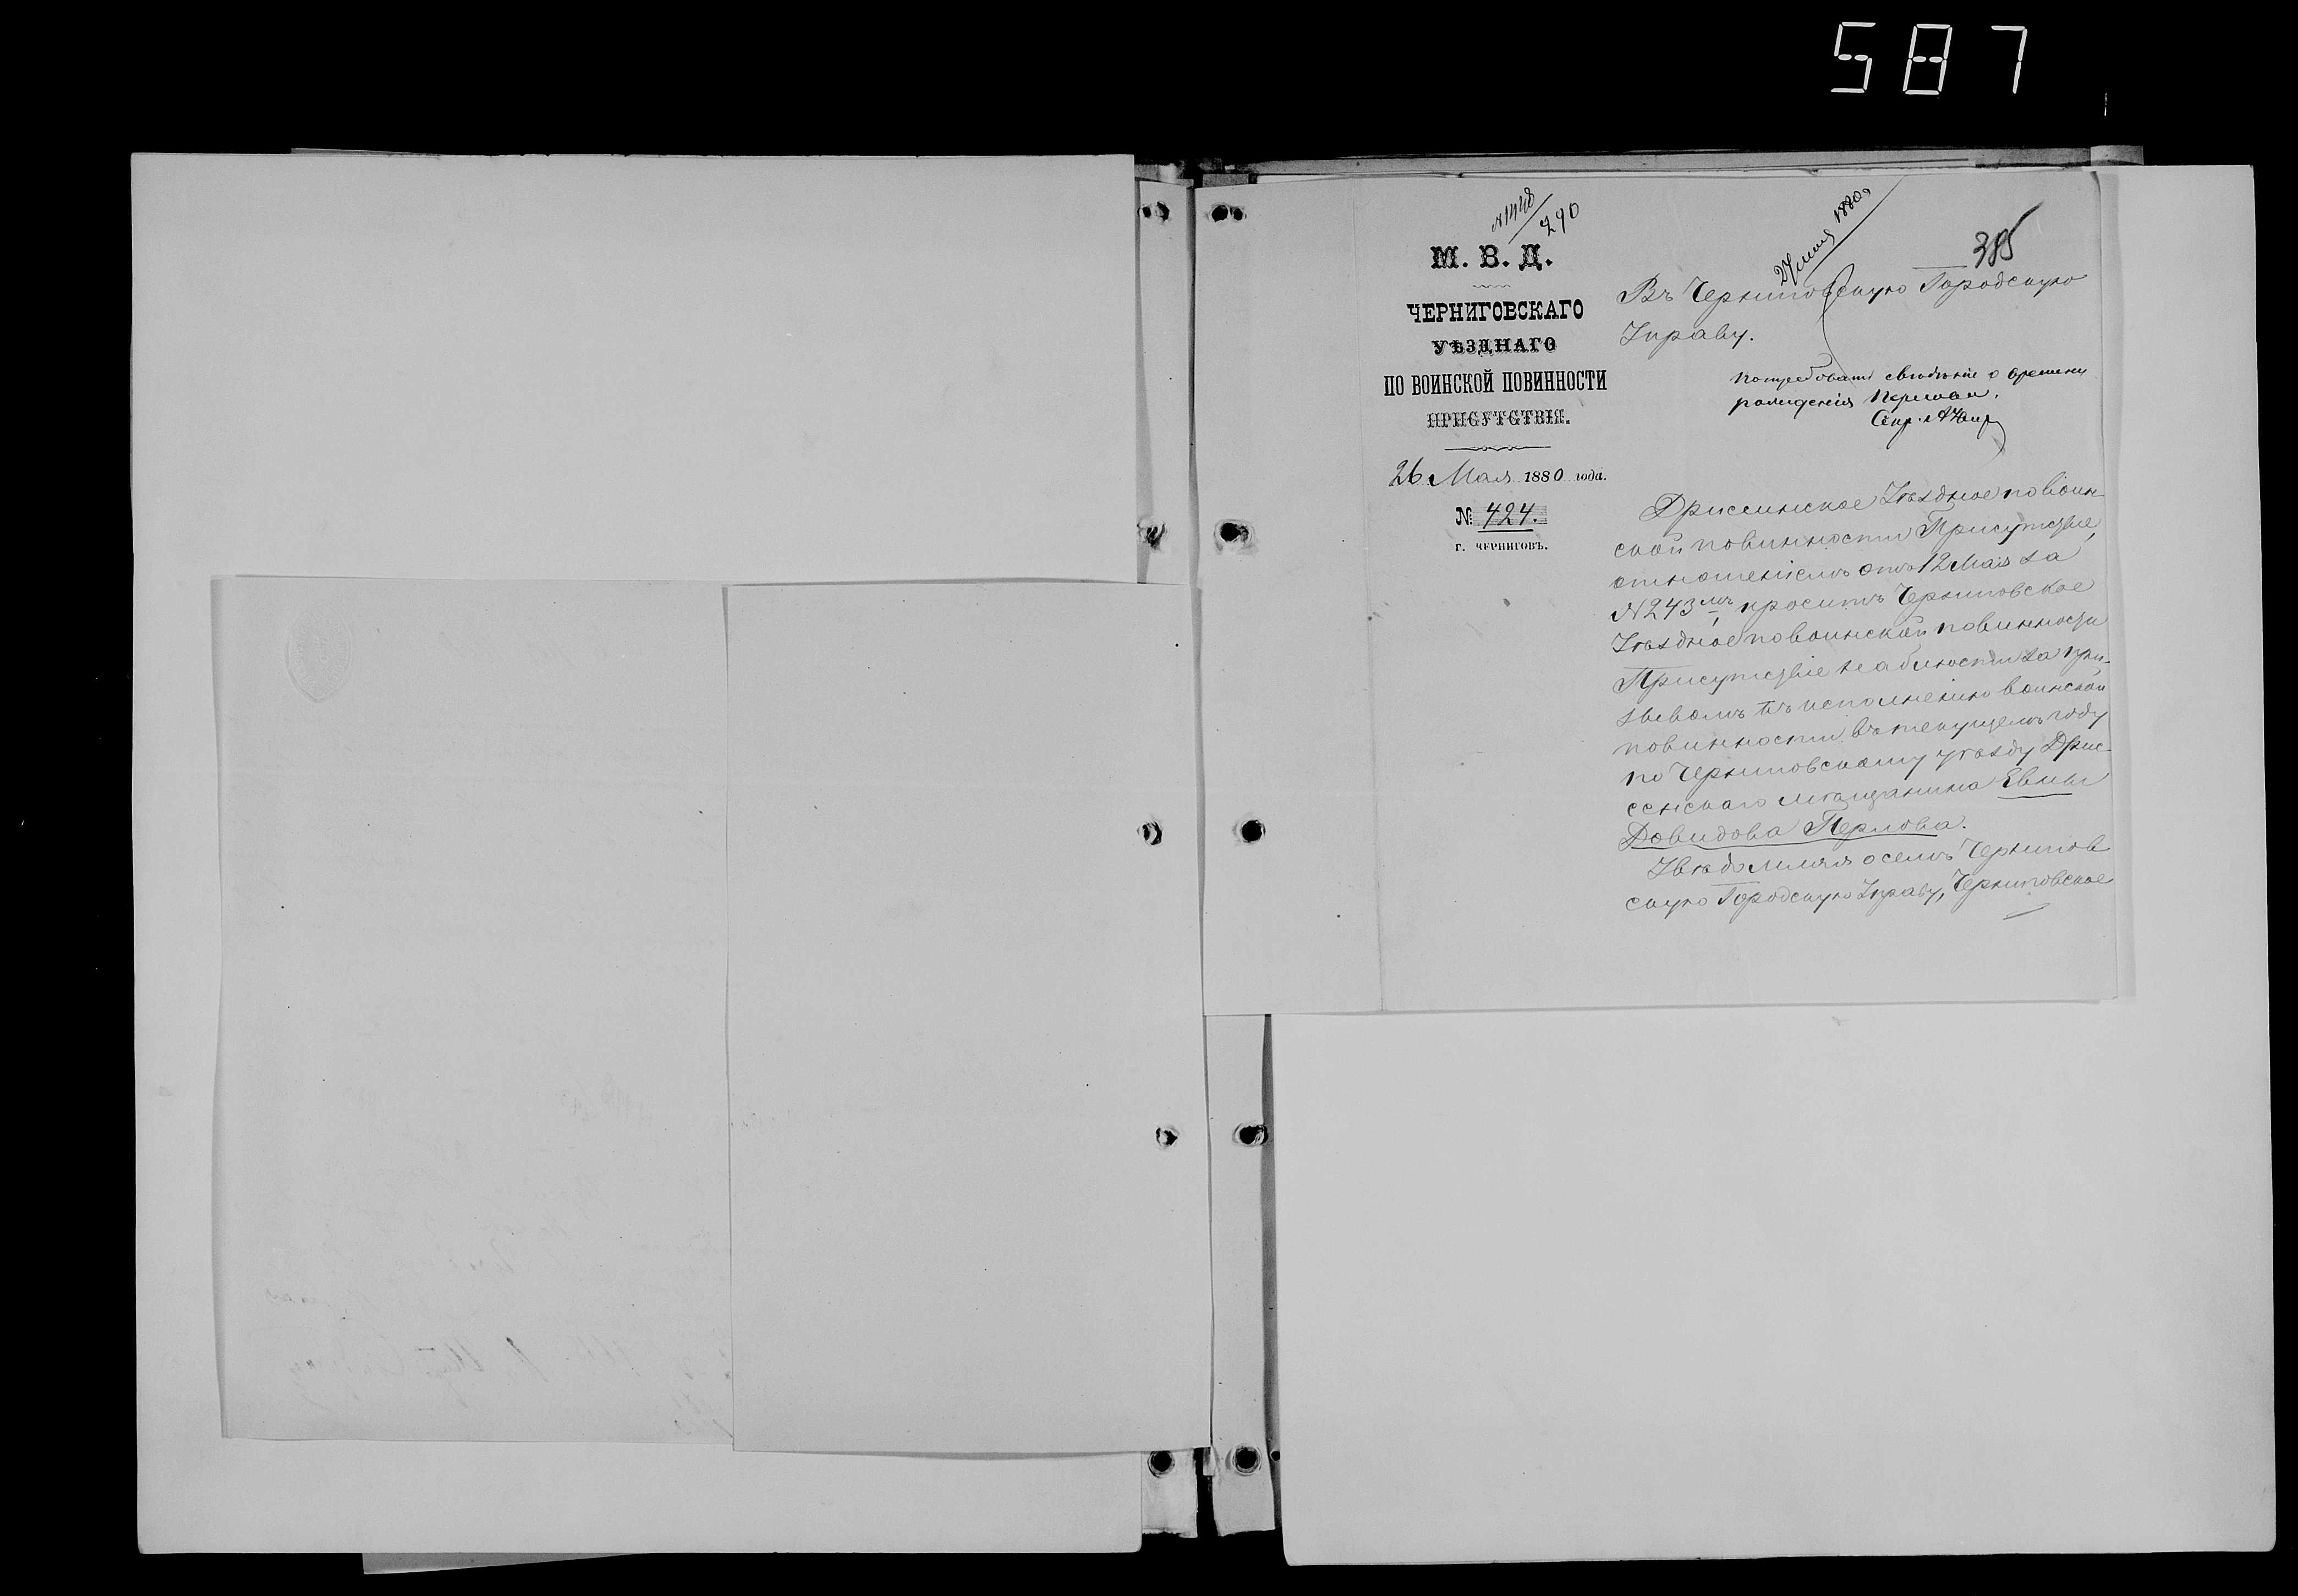 587
№ 1448/290
27 мая 1880 г
385
М. В. Д.
ЧЕРНИГОВСКАГО
УѢЗДНАГО
ПО ВОИНСКОЙ ПОВИННОСТИ
ПРИСУТСТВІЯ.
26 Мая 1880 года.
№ 424.
г. ЧЕРНИГОВЪ.
Въ Черниговскую Городскую
Управу.
Потребовать свѣдѣніе о времени
рожденія Перлова.
Дриссинское Уѣздное по воин-
ской повинности Присутствіе,
отношеніемъ отъ 12 Мая за
№ 243мъ, проситъ Черниговское
Уѣздное по воинской повинности
Присутствіе не
зывомъ къ исполненію воинской
повинности въ текущемъ году
по Черниговскому уѣзду Дрис-
сенскаго мѣщанина
Довидова Перлова.
Увѣдомляя о семъ Чернигов
скую Городскую Управу, Черниговское